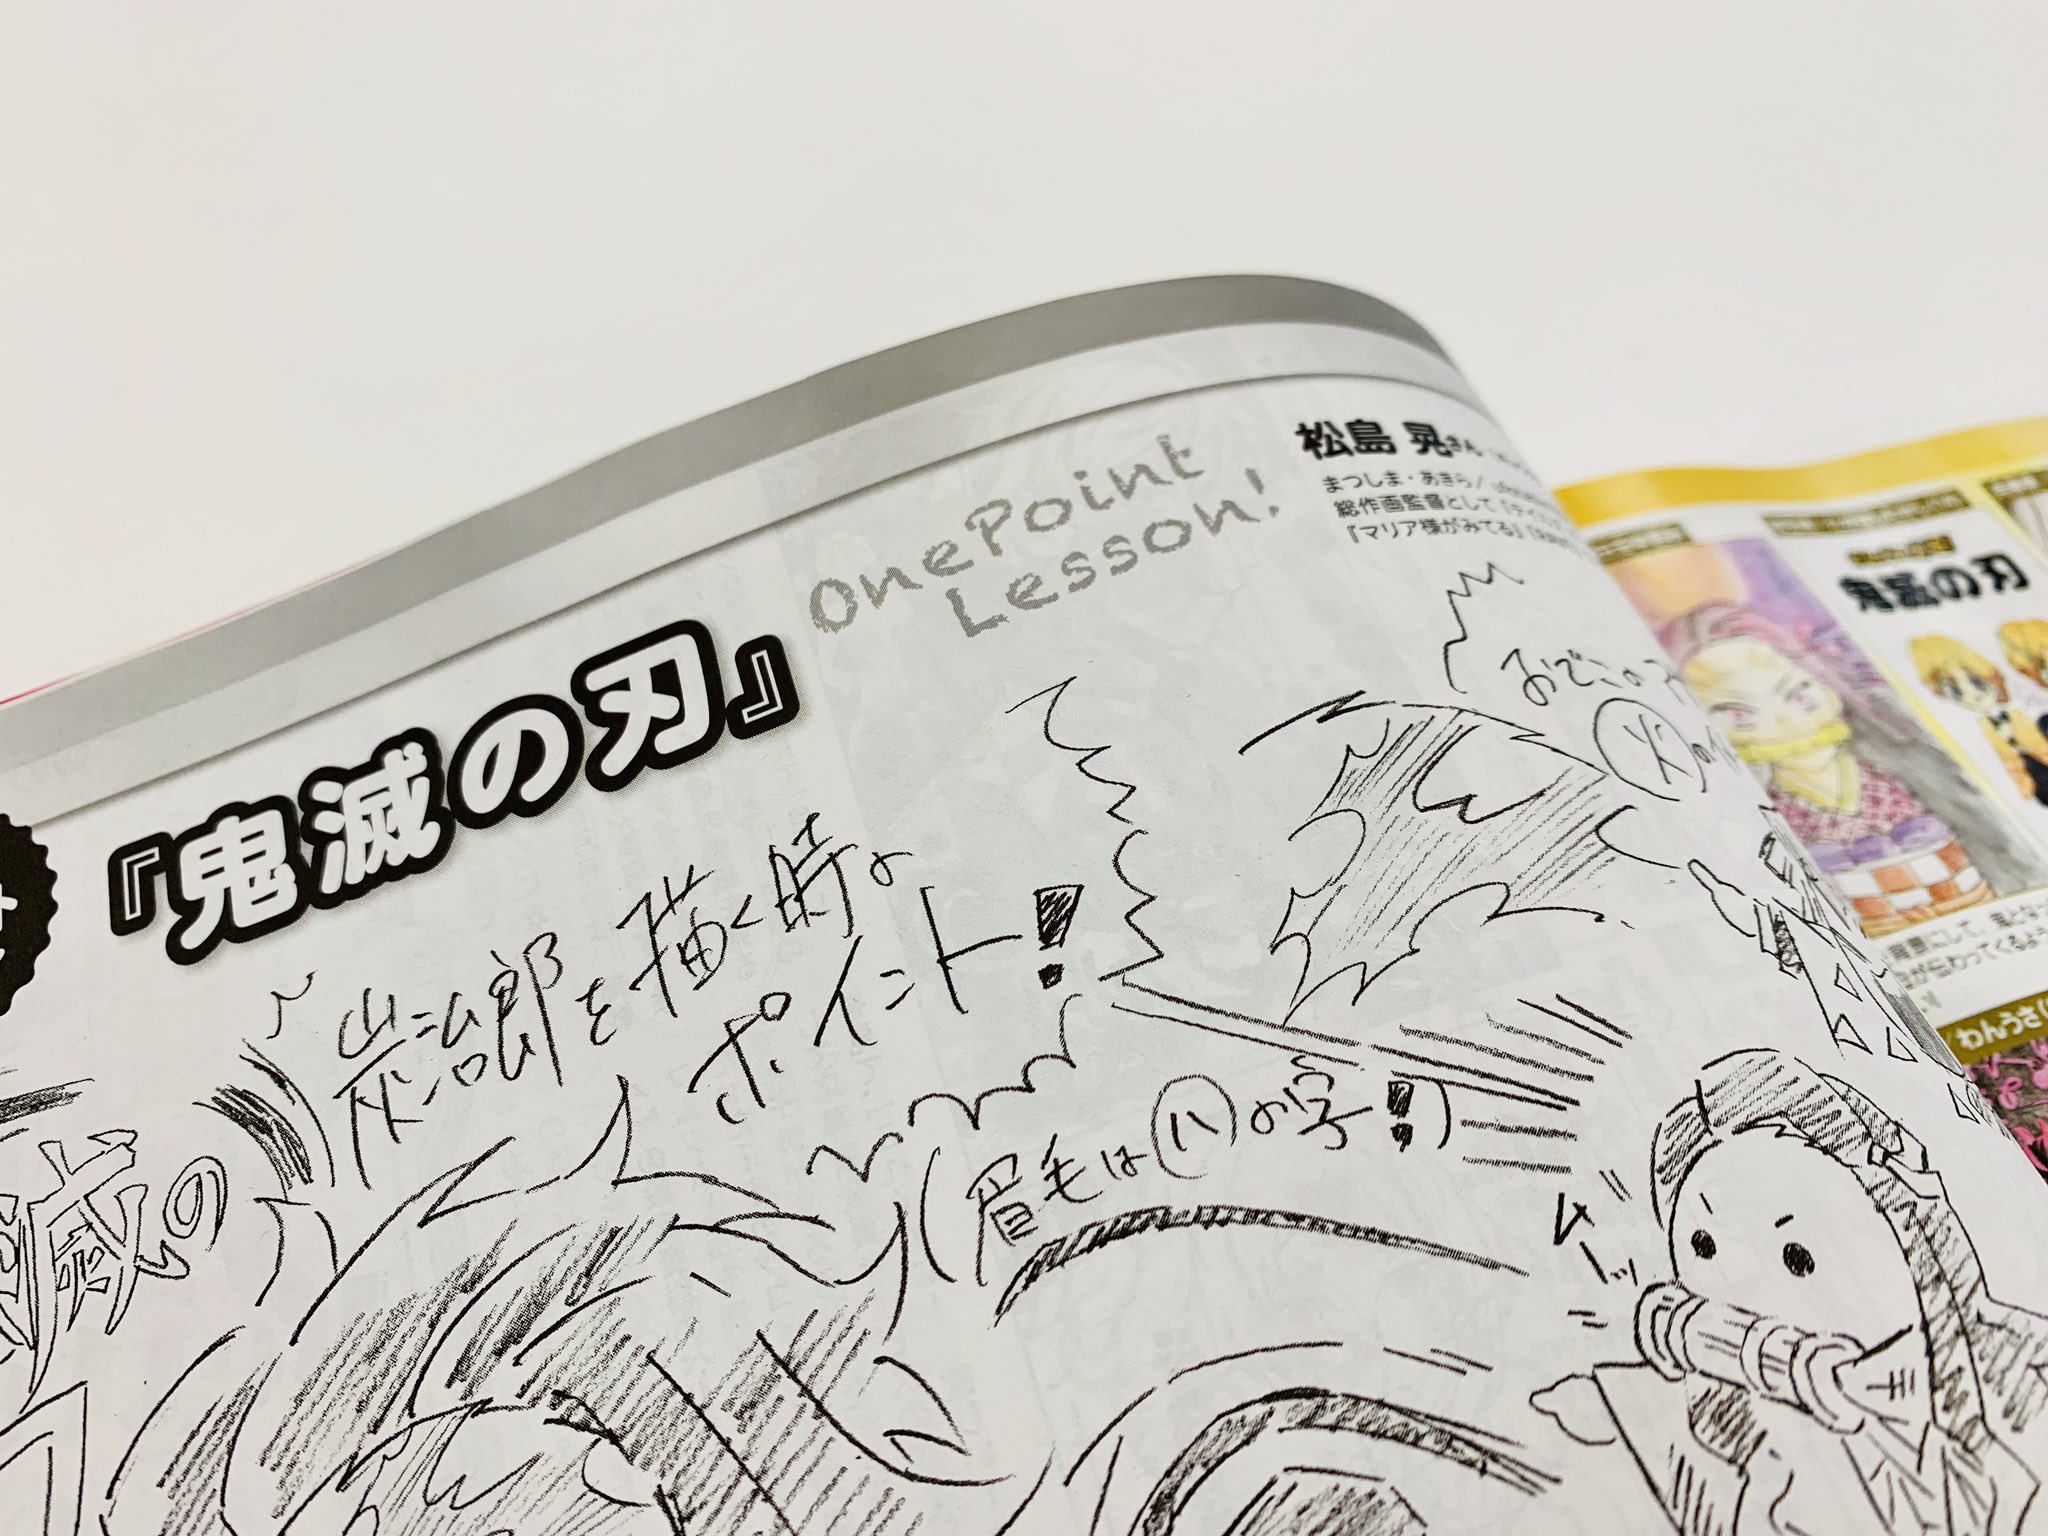 『鬼滅の刃』
OnePoint
Lesson!
松島 晃さん
まつしま・あきら/
総作画監督として『テイルズ
『マリア様がみてる』
炭治郎を描く時の
ポイント!
(眉毛は八の字!!)
おでこの
火の
滅の
ムーッ
鬼滅の刃
わんうさ